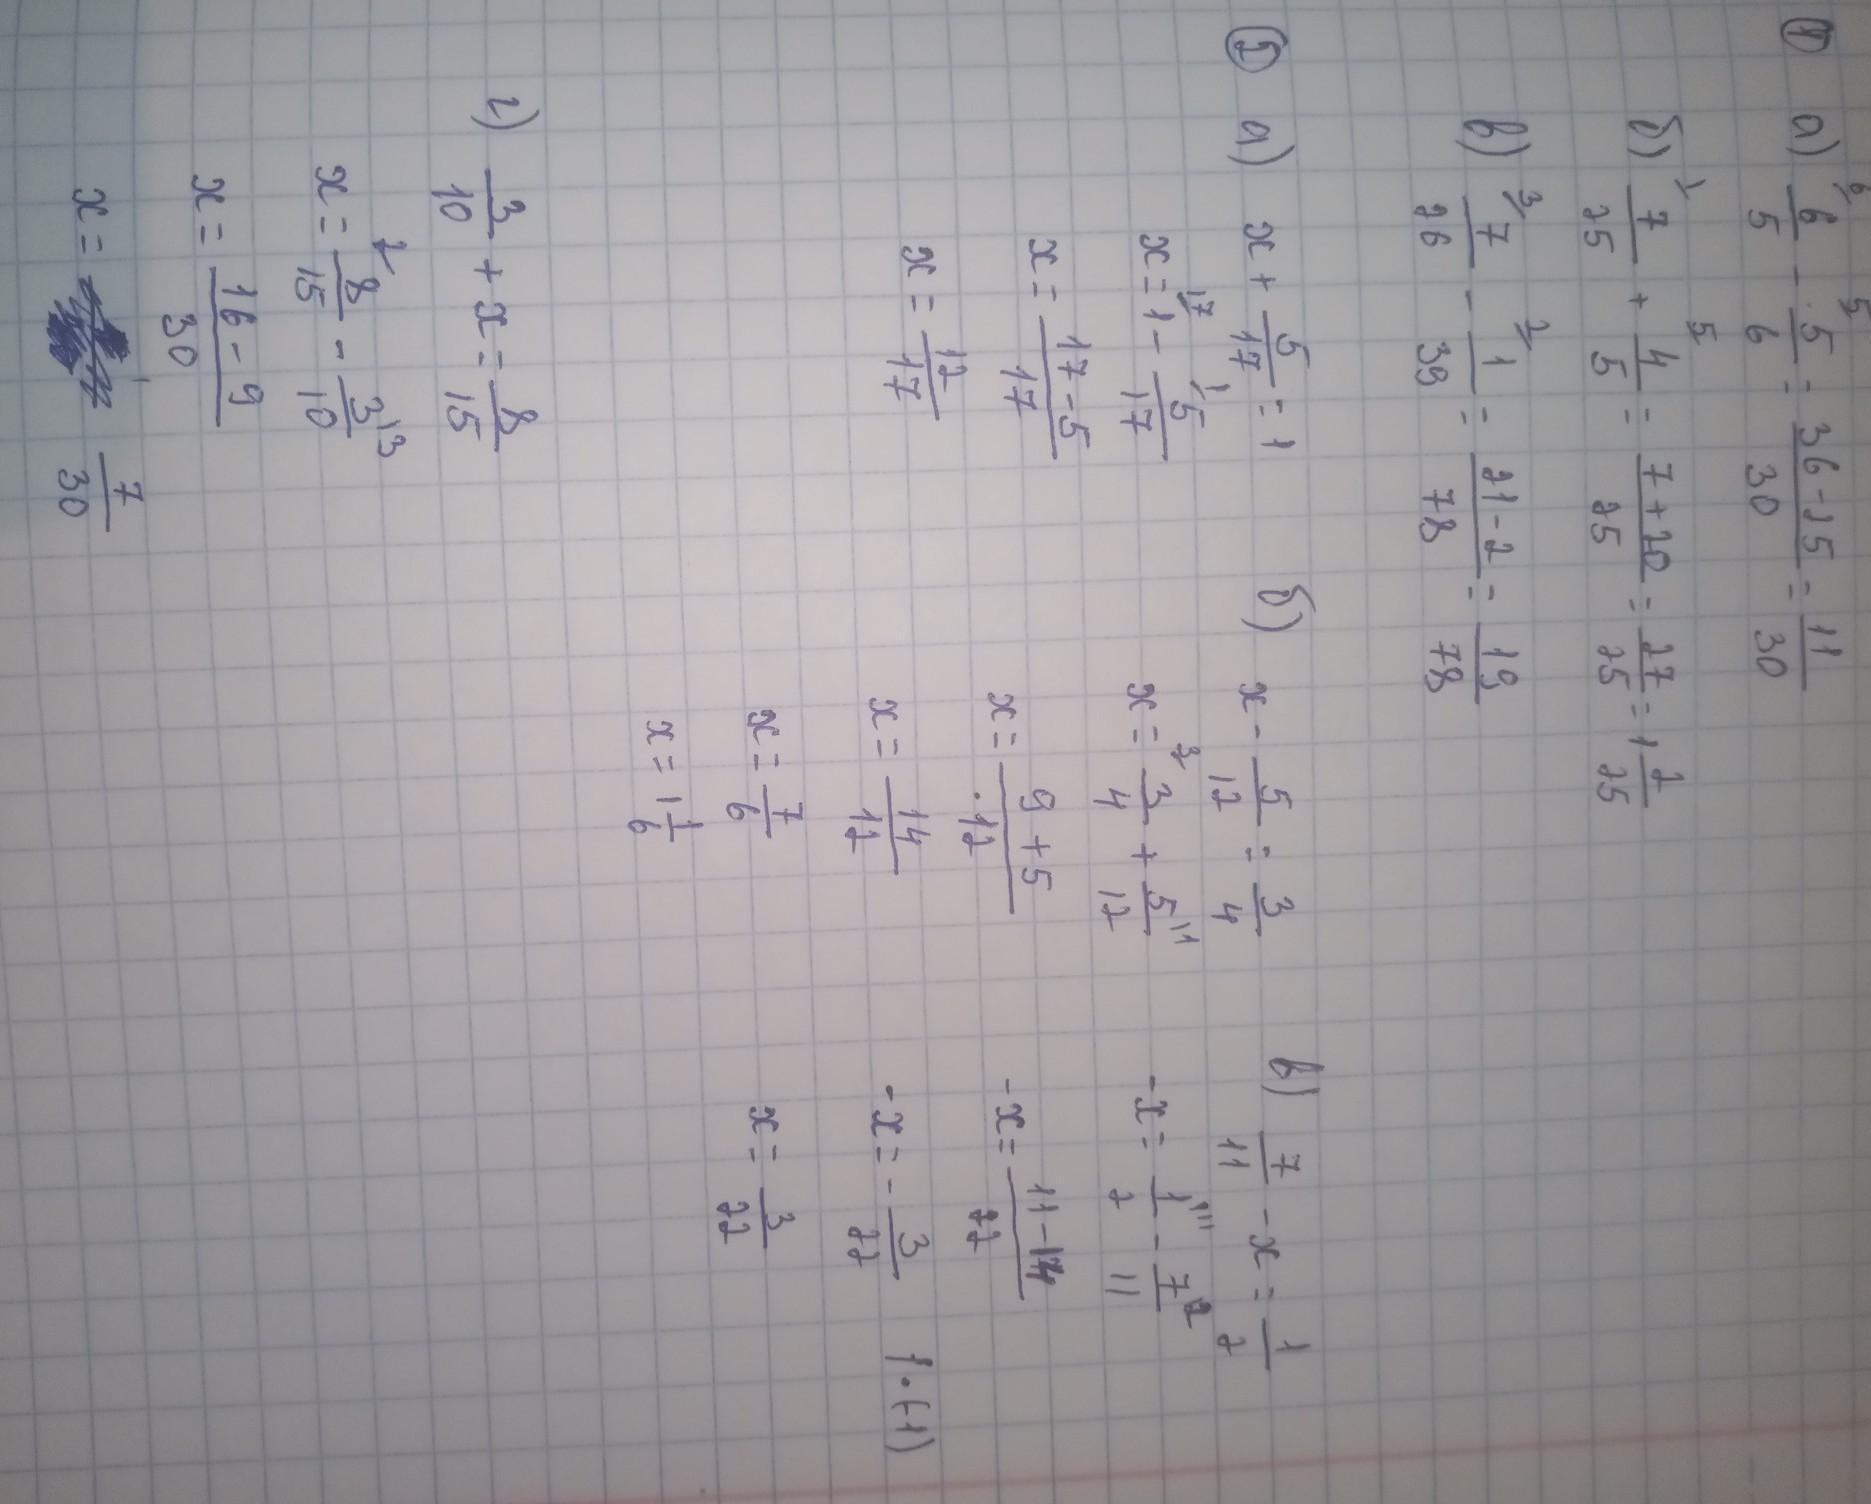 ① а) 6/5 - 5/6 = (36-25)/30 = 11/30
б) 7/25 + 4/5 = (7+20)/25 = 27/25 = 1 2/25
в) 7/26 - 1/39 = (21-2)/78 = 19/78
② а) x + 5/17 = 1
x = 1 - 5/17
x = (17-5)/17
x = 12/17
б) x - 5/12 = 3/4
x = 3/4 + 5/12
x = (9+5)/12
x = 14/12
x = 7/6
x = 1 1/6
в) 7/11 - x = 1/2
-x = 1/2 - 7/11
-x = (11-14)/22
-x = -3/22 |·(-1)
x = 3/22
г) 3/10 + x = 8/15
x = 8/15 - 3/10
x = (16-9)/30
x = 7/30